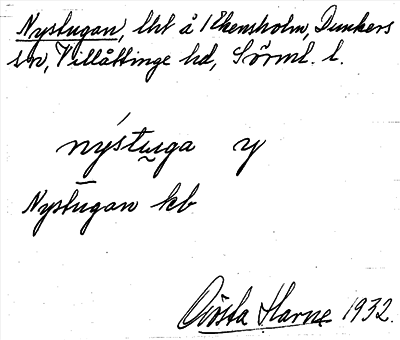 Nystugan, lht å Ekensholm, Dunkers
sn, Villåttinge hd, Sörml. l.
nýstu̬ga y
Nystūgan kb
Gösta Harne 1932.